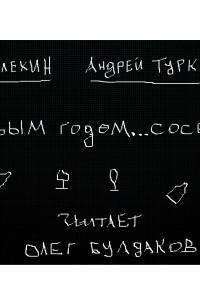 ЛЕХИН АНДРЕЙ ТУРК
ЫМ ГОДОМ,..СОСЕ
ЧИТАЕТ
ОЛЕГ БУЛДАКОВ